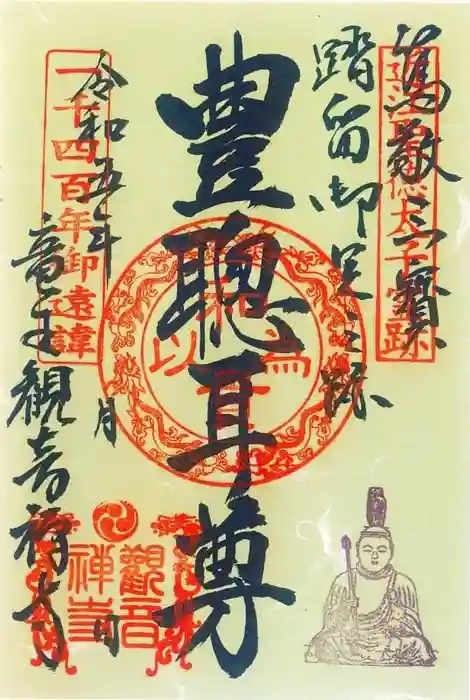 篤敬三寶
近江聖徳太子霊跡
踏留御足之跡
豊聰耳尊
以和為貴
一千四百年御遠諱
令和五年 月 日
竜王観音禅寺
觀音禅寺